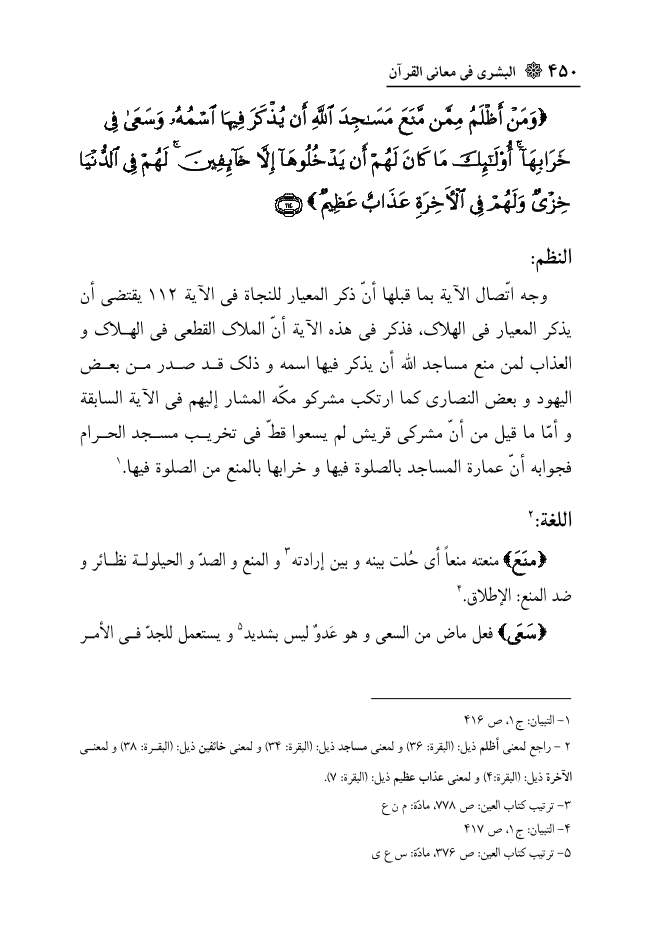 ۴۵۰ البشرى فى معانى القرآن
﴿وَمَنْ أَظْلَمُ مِمَّن مَّنَعَ مَسَـٰجِدَ ٱللَّهِ أَن يُذْكَرَ فِيهَا ٱسْمُهُۥ وَسَعَىٰ فِى
خَرَابِهَآ ۚ أُوْلَـٰٓئِكَ مَا كَانَ لَهُمْ أَن يَدْخُلُوهَآ إِلَّا خَآئِفِينَ ۚ لَهُمْ فِى ٱلدُّنْيَا
خِزْىٌ وَلَهُمْ فِى ٱلْأَخِرَةِ عَذَابٌ عَظِيمٌ﴾ ١١٤
النظم:
وجه اتّصال الآية بما قبلها أنّ ذكر المعيار للنجاة فى الآية ۱۱۲ يقتضى أن
يذكر المعيار فى الهلاک، فذكر فى هذه الآية أنّ الملاک القطعى فى الهـلاک و
العذاب لمن منع مساجد الله أن يذكر فيها اسمه و ذلک قـد صـدر مـن بعـض
اليهود و بعض النصارى كما ارتكب مشركو مكّه المشار إليهم فى الآية السابقة
و أمّا ما قيل من أنّ مشركى قريش لم يسعوا قطّ فى تخريـب مسـجد الحـرام
فجوابه أنّ عمارة المساجد بالصلوة فيها و خرابها بالمنع من الصلوة فيها.۱
اللغة:۲
﴿منَعَ﴾ منعته منعاً أى حُلت بينه و بين إرادته۳ و المنع و الصدّ و الحيلولـة نظـائر و
ضد المنع: الإطلاق.۴
﴿سَعَى﴾ فعل ماض من السعى و هو عَدوٌ ليس بشديد۵ و يستعمل للجدّ فـى الأمـر
۱- التبيان: ج۱، ص ۴۱۶
۲ - راجع لمعنى أظلم ذيل: (البقرة: ۳۶) و لمعنى مساجد ذيل: (البقرة: ۳۴) و لمعنى خائفين ذيل: (البقـرة: ۳۸) و لمعنـى
الآخرة ذيل: (البقرة:۴) و لمعنى عذاب عظيم ذيل: (البقرة: ۷).
۳- ترتيب كتاب العين: ص ۷۷۸، مادّة: م ن ع
۴- التبيان: ج۱، ص ۴۱۷
۵- ترتيب كتاب العين: ص ۳۷۶، مادّة: س ع ى